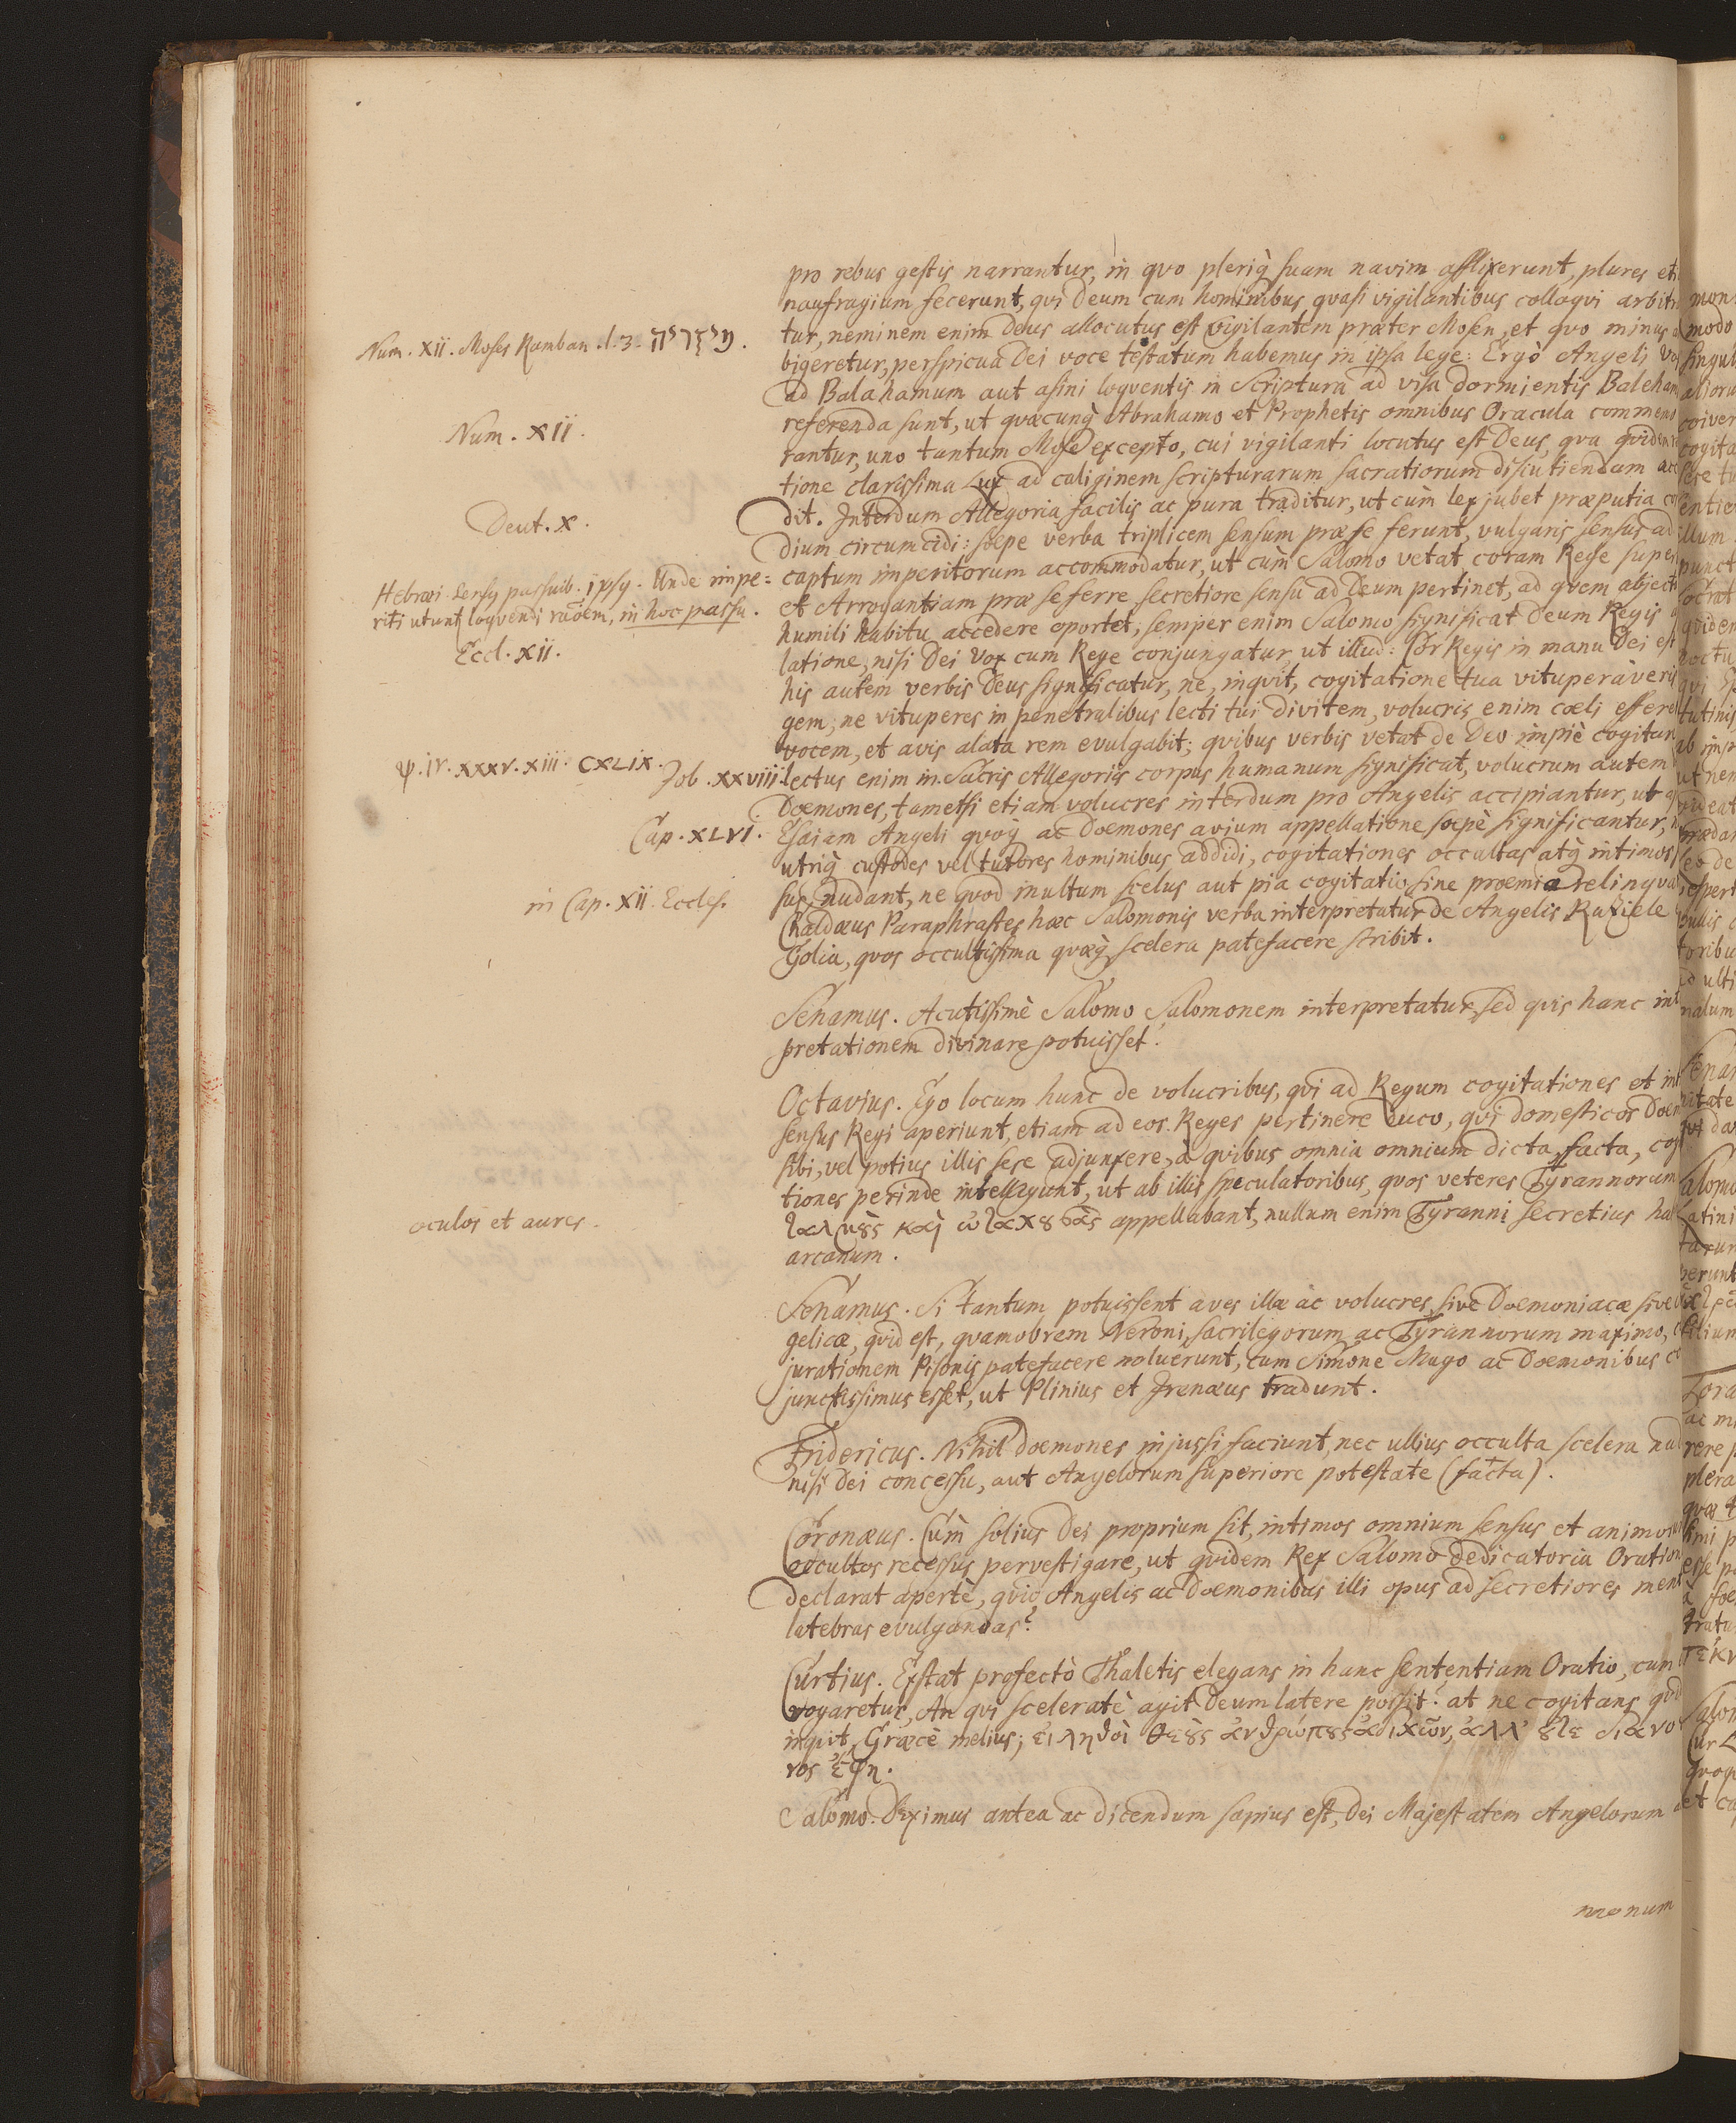 pro rebus gestis narrantur, in qvo pleriq̃ suam navim afflixerunt, plures et
naufragium fecerunt, qvi Deum cum hominibus qvasi vigilantibus colloqvi arbit
Num. XII. Moses Ramban. l. 3.
tur, neminem enim Deus allocutus est vigilantem præter Mosen, et qvo minus
bigeretur, perspicua Dei voce testatum habemus in ipsa lege: Ergò Angeli
ad Balahamum aut asini loqventis in Scriptura ad visa dormientis Baleham
Num. XII.
referenda sunt, ut qvæcunq̃ Abrahamo et Prophetis omnibus Oracula commemo
rantur, uno tantum Mose excepto, cui vigilanti locutus est Deus, qva qvidem
tione clarissima Lux ad caliginem scripturarum sacratiorum discutiendam ac
Deut. X.
dit. Interdum Allegoria facilis ac pura traditur, ut cùm lex jubet præputia co
dium circumcidi: sæpe verba triplicem sensum præ se ferunt, vulgaris sensus ad
Hebræi. sensq passuib. ipsq. Unde impe=
captum imperitorum accommodatur, ut cùm Salomo vetat coram Rege super
riti utunt loqvendi raōem, in hoc passu.
et Arrogantiam præ se ferre, secretiore sensu ad Deum pertinet, ad qvem abject
humili habitu accedere oportet, semper enim Salomo significat Deum Regis
Eccl. XII.
latione, nisi Dei Vox cum Rege conjungatur ut illud: Cor Regis in manu Dei est
his autem verbis Deus significatur, ne, inqvit, cogitatione tua vituperàveris
gem; ne vituperes in penetralibus lecti tui divitem, volucris enim cœli effere
vocem, et avis alata rem evulgabit; qvibus verbis vetat de Deo impiè cogitan
ψ. IV. XXXV. XIII. CXLIX.
Job. XXVIII
lectus enim in Sacris Allegoriis corpus humanum significat, volucrum autem
Dœmones, tametsi etiam volucres interdum pro Angelis accipiantur, ut
Cap. XLVI.
Esaiam Angeli qvoq̃ ac Dœmones avium appellatione sœpè significantur,
utriq̃ custodes vel tutores hominibus addidi, cogitationes occultas atq̃ intimos
in Cap. XII. Eccles.
sus, nudant, ne qvod inultum scelus aut pia cogitatio sine præmia relinqva
Chaldæus Paraphrastes hæc Salomonis verba interpretatur de Angelis Raziele
Golia, qvos occultissima qvæq̃ scelera patefacere scribit.
Senamus. Acutissimè Salomo Salomonem interpretatur, sed qvis hanc int
pretationem divinare potuisset.
Octavius. Ego locum hunc de volucribus, qvi ad Regum cogitationes et int
sensus Regi aperiunt, etiam ad eos Reges pertinere duco, qvi domesticos Dœm
sibi, vel potius illis sese adjunxere, à qvibus omnia omnium dicta, facta, cog
tiones perinde intelligunt, ut ab illis speculatoribus, qvos veteres Tyrannorum
oculos et aures.
appellabant, nullum enim Tyranni secretius ha
arcanum.
Senamus. Si tantum potuissent aves illæ ac volucres, sive Dœmoniacæ sive
gelicæ, qvid est, qvamobrem Neroni, sacrilegorum ac Tyrannorum maximo,
jurationem Pisonis patefacere noluerunt, cum Simone Mago ac Dœmonibus
junctissimus esset, ut Plinius et Irenæus tradunt.
Fridericus. Nihil dœmones injussi faciunt, nec ullius occulta scelera nu
nisi Dei concessu, aut Angelorum superiore potestate (facta).
Coronæus. Cùm solius Dei proprium sit, intimos omnium sensus et animor
occultos recessus pervestigare, ut qvidem Rex Salomo dedicatoria Oration
declarat apertè, qvid Angelis ac Dœmonibus illi opus ad secretiores ment
latebras evulgandas?
Curtius. Exstat profectò Thaletis elegans in hanc sententiam Oratio, cum
rogaretur, An qvi sceleratè agit Deum latere possit? at ne cogitans qvid
inqvit, Græcè melius; εἰ ληθοὶ θεȣ̀ς ἀνθρώπȣς ἀδικῶν, ἀλλ' ȣ̓δε διανο
νος ἔφη.
Salomo. Diximus antea ac dicendum sæpius est, Dei Majestatem Angelorum
monum